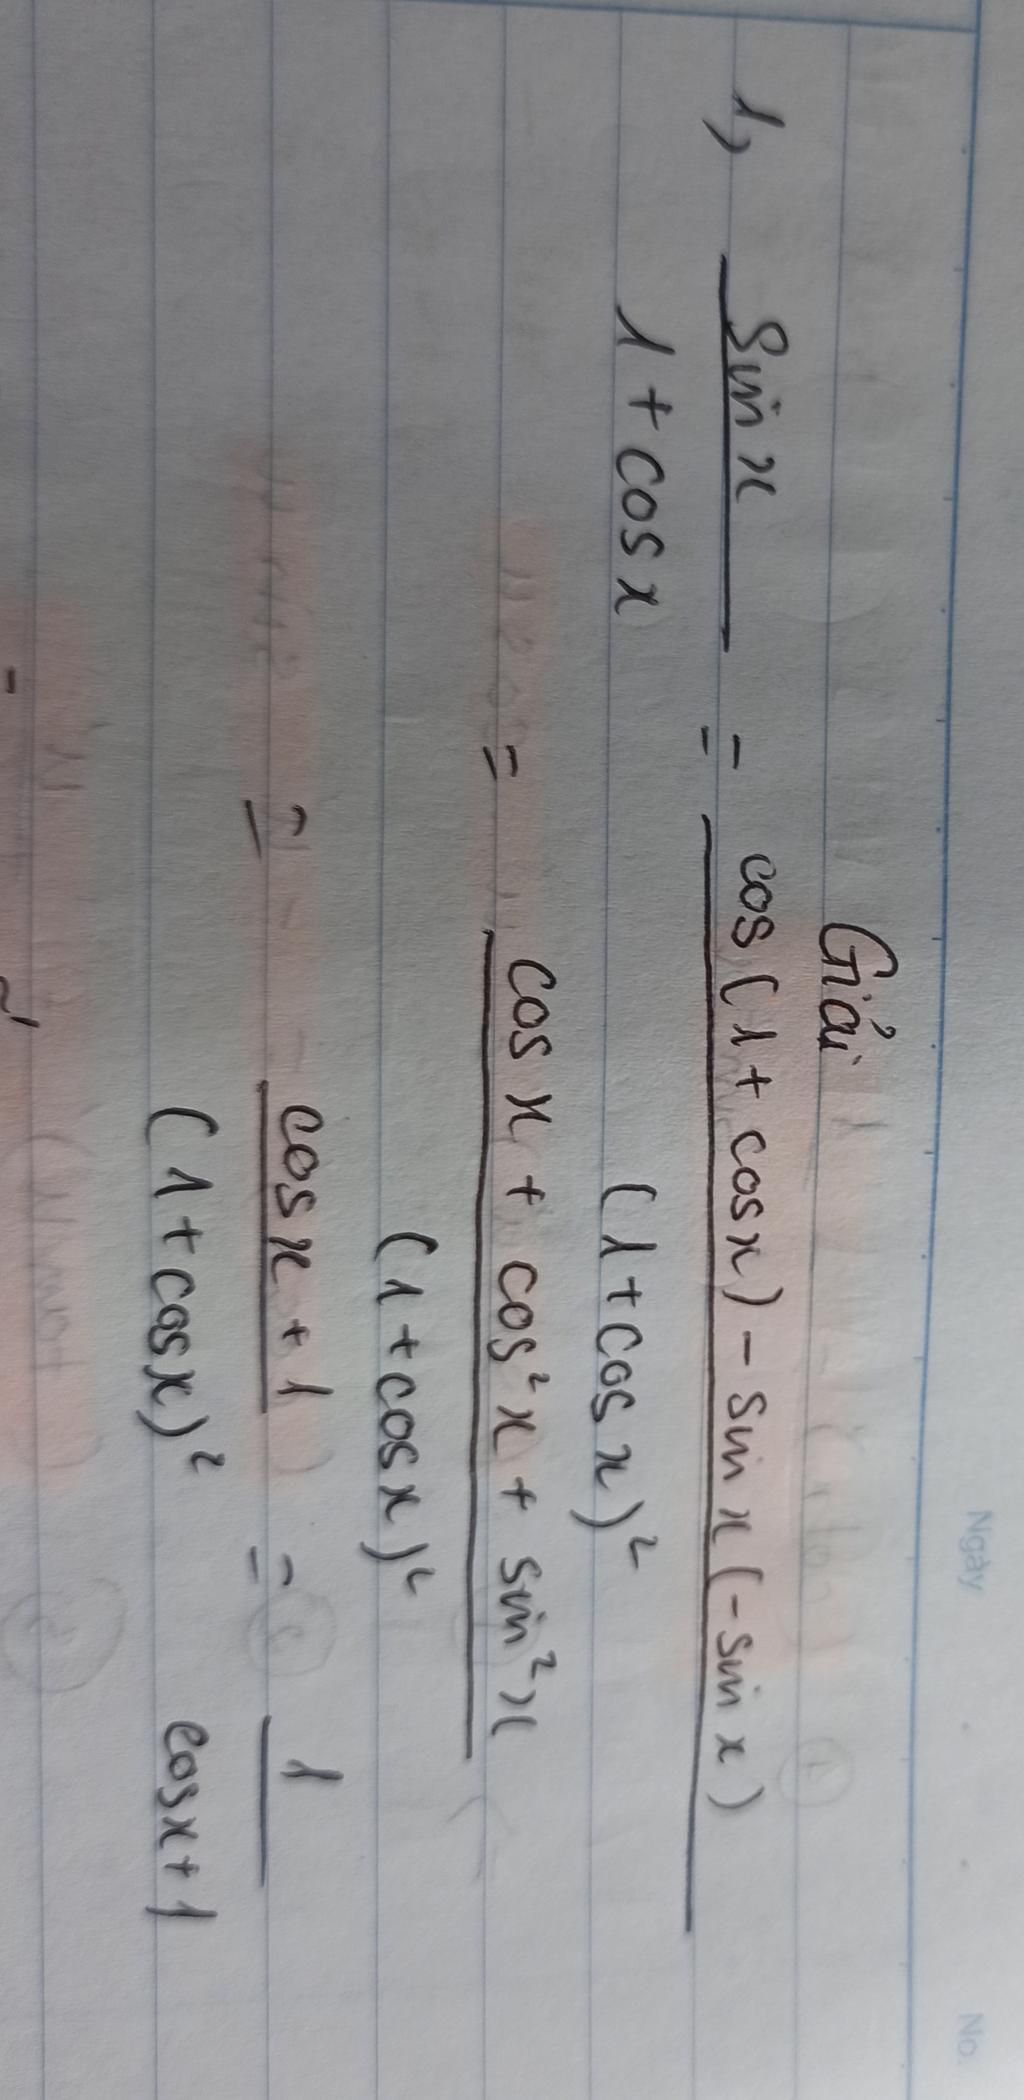 Ngày No.
Giải
1, sin x / 1 + cos x = cos(1 + cos x) - sin x (-sin x) / (1 + cos x)²
= cos x + cos² x + sin² x / (1 + cos x)²
= cos x + 1 / (1 + cos x)² = 1 / cos x + 1